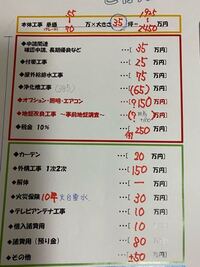 55 1925
本体工事 単価 万×大きさ 35 坪=
70 2450
◆申請関連
確認申請、長期優良など …〔 35 万円〕
◆付帯工事 …〔 25 万円〕
◆屋外給排水工事 …〔 75 万円〕
◆浄化槽工事 …〔 (65) 万円〕
◆オプション・照明・エアコン …〔 ?150 万円〕
◆地盤改良工事 ~事前地盤調査~ …〔 (? 万円〕
◆税金 10% …〔 250 万円〕
◆カーテン …〔 20 万円〕
◆外構工事 1次2次 …〔 150 万円〕
◆解体 …〔 ー 万円〕
◆火災保険 10年 …〔 30 万円〕
◆テレビアンテナ工事 …〔 10 万円〕
◆借入諸費用 …〔 10 万円〕
◆諸費用(預り金) …〔 80 万円〕
◆その他 …〔 ±50 万円〕